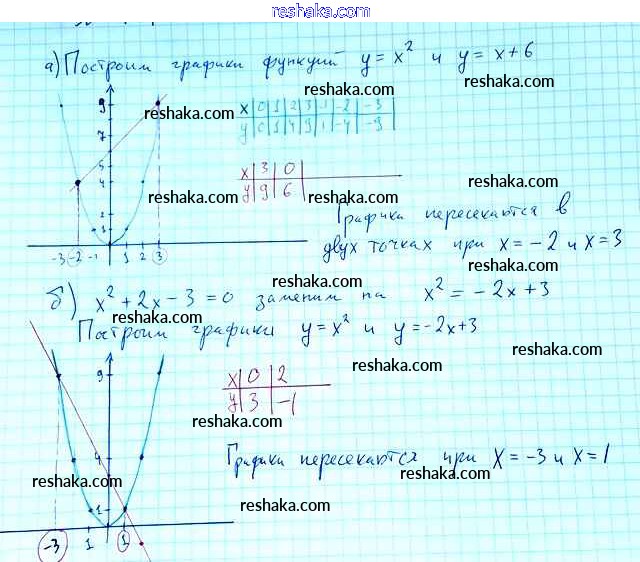 reshaka.com
а) Построим графики функций y = x² и y = x+6
reshaka.com
reshaka.com
9
x 0 1 2 3 -1 -2 -3
7
y 0 1 4 9 1 -4 -9
reshaka.com
5
x 3 0
4
y 9 6
reshaka.com
reshaka.com
reshaka.com
2
Графики пересекаются в
1
reshaka.com
двух точках при x = -2 и x = 3
-3 -2 -1 1 2 3
reshaka.com
б) x² + 2x - 3 = 0 заменим на x² = -2x + 3
reshaka.com
Построим графики y = x² и y = -2x+3
reshaka.com
reshaka.com
9
x 0 2
y 3 -1
reshaka.com
4
Графики пересекаются при x = -3 и x = 1
reshaka.com
reshaka.com
reshaka.com
1
-3 1 1